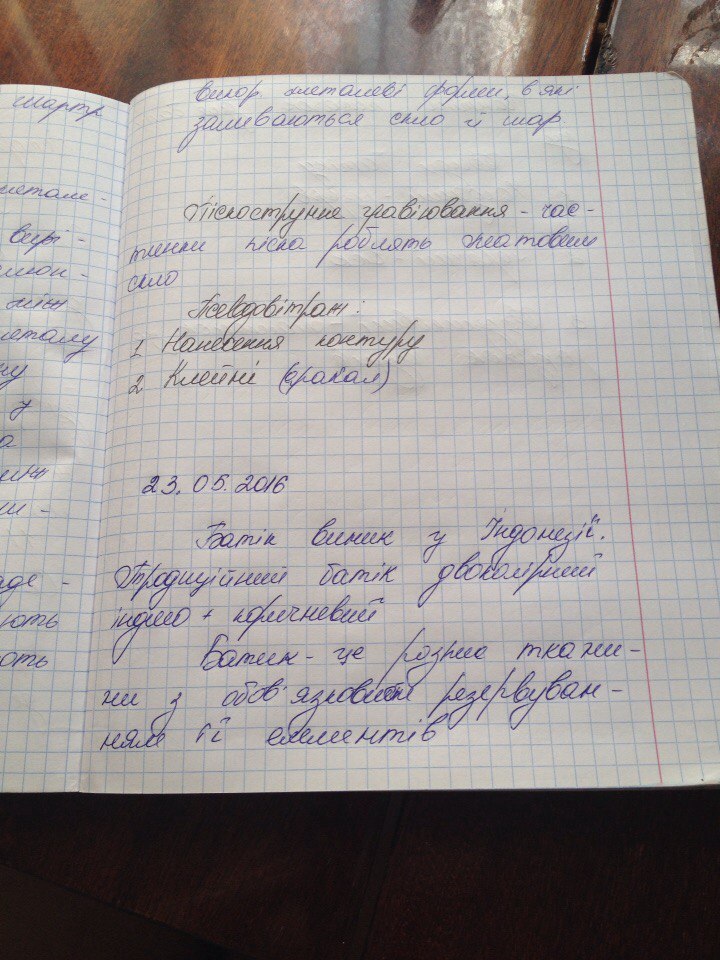 шартр
метале-
вирі-
між
металу
ну
у
а
ни-
аде-
ють
ють
викор. металеві форми, в які
заливаються скло й шар
Піскострунне гравіювання - час-
тинки піска роблять матовим
скло
Псевдовітраж:
1 Нанесення контуру
2 Клейні (оракал)
23.05.2016
Батік виник у Індонезії.
Традиційний батік двоколірний
індиго + коричневий
Батик - це розпис ткани-
ни з обов'язковим резервуван-
ням її елементів